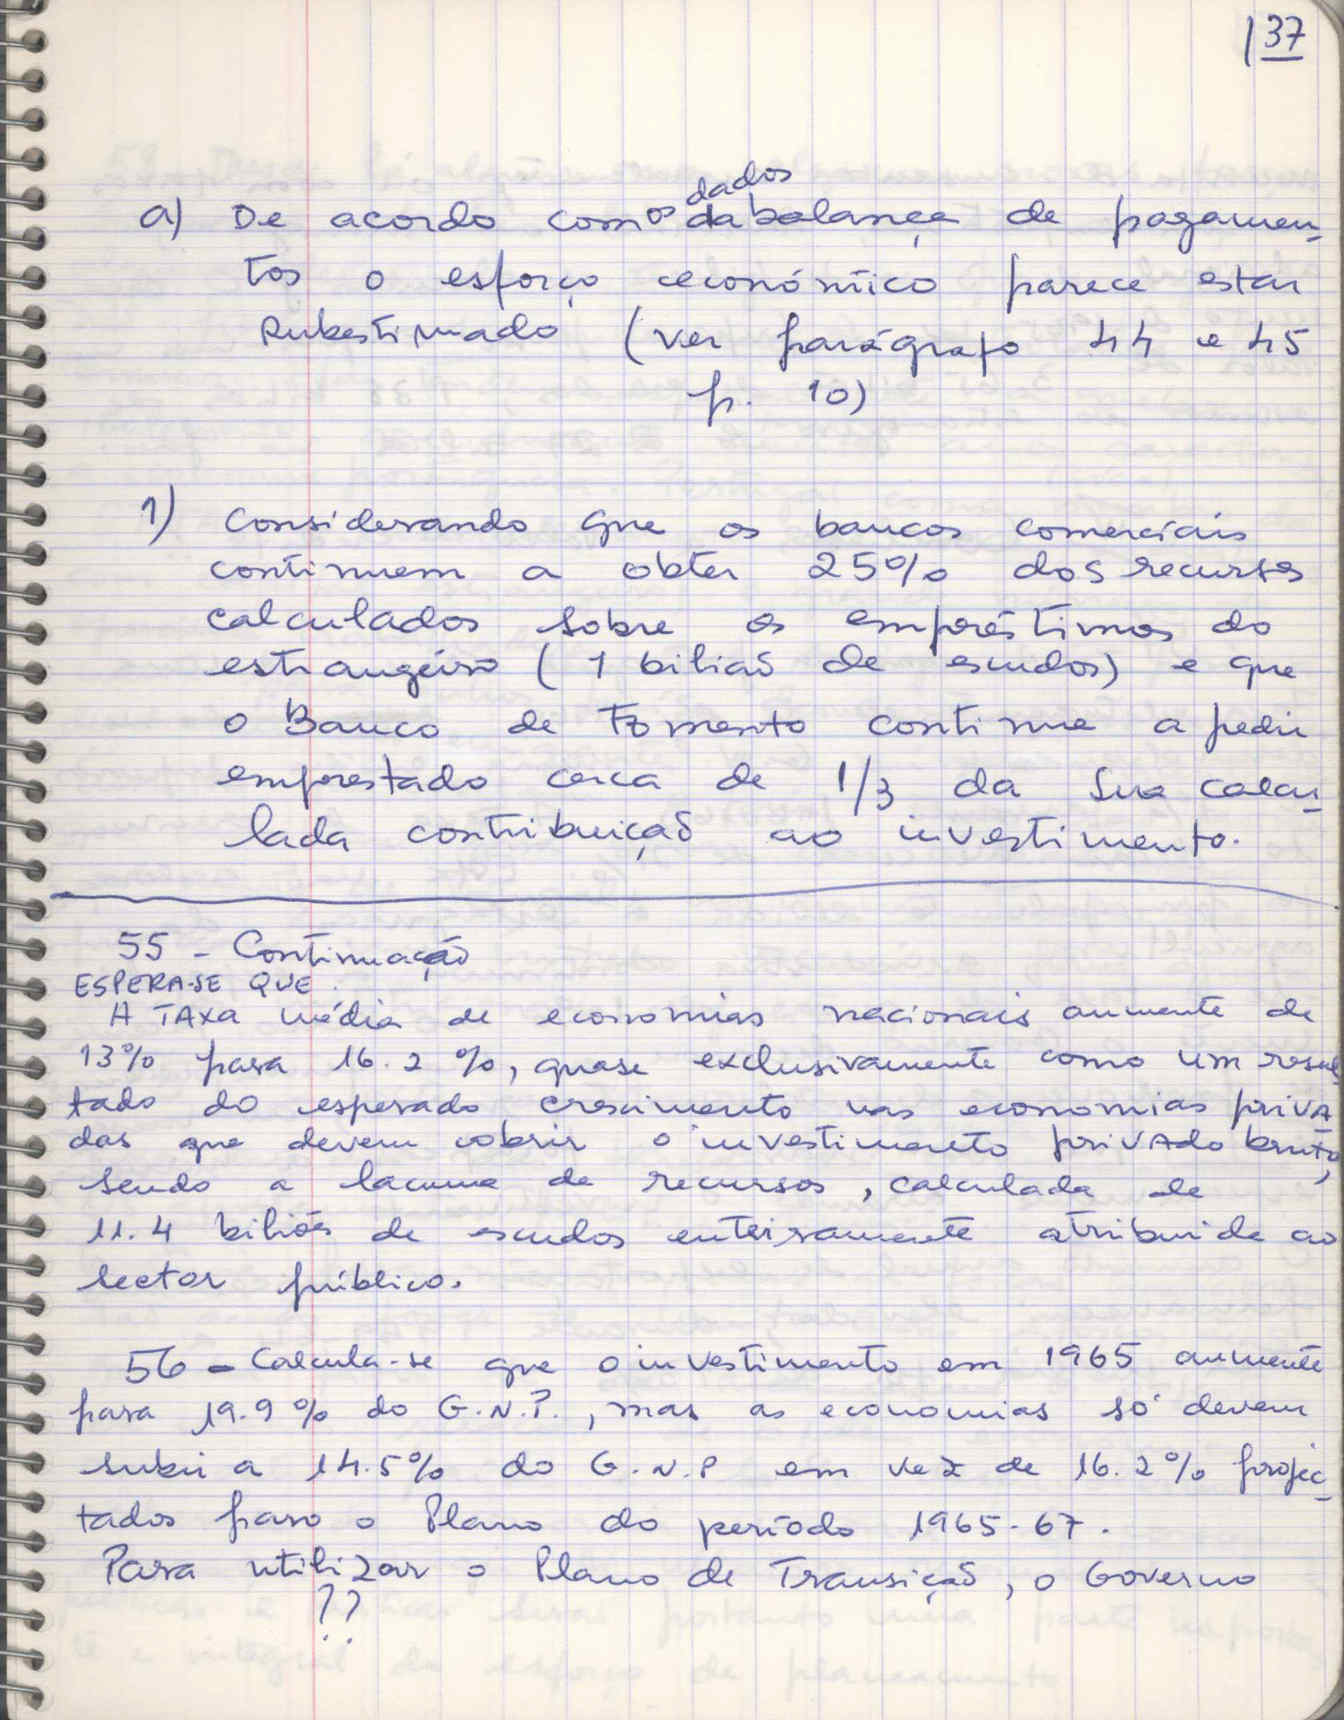 137
a) De acordo com os dados da balança de pagamen-
tos o esforço económico parece estar
subestimado (ver parágrafo 44 e 45
p. 10)
1) Considerando que os bancos comerciais
continuem a obter 25% dos recursos
calculados sobre os empréstimos do
estrangeiro (1 bilião de escudos) e que
o Banco de Fomento continue a pedir
emprestado cerca de 1/3 da sua calcu-
lada contribuição ao investimento.
55 - Continuação
ESPERA-SE QUE
A TAXA média de economias nacionais aumente de
13% para 16.2 %, quase exclusivamente como um resul
tado do esperado crescimento nas economias priva-
das que devem cobrir o investimento privado bruto,
sendo a lacuna de recursos, calculada de
11.4 biliões de escudos enteiramente atribuida ao
sector público.
56 - Calcula-se que o investimento em 1965 aumente
para 19.9% do G.N.P., mas as economias só devem
subir a 14.5% do G.N.P em vez de 16.2% projec-
tados para o Plano do período 1965-67.
Para utilizar o Plano de Transição, o Governo
??